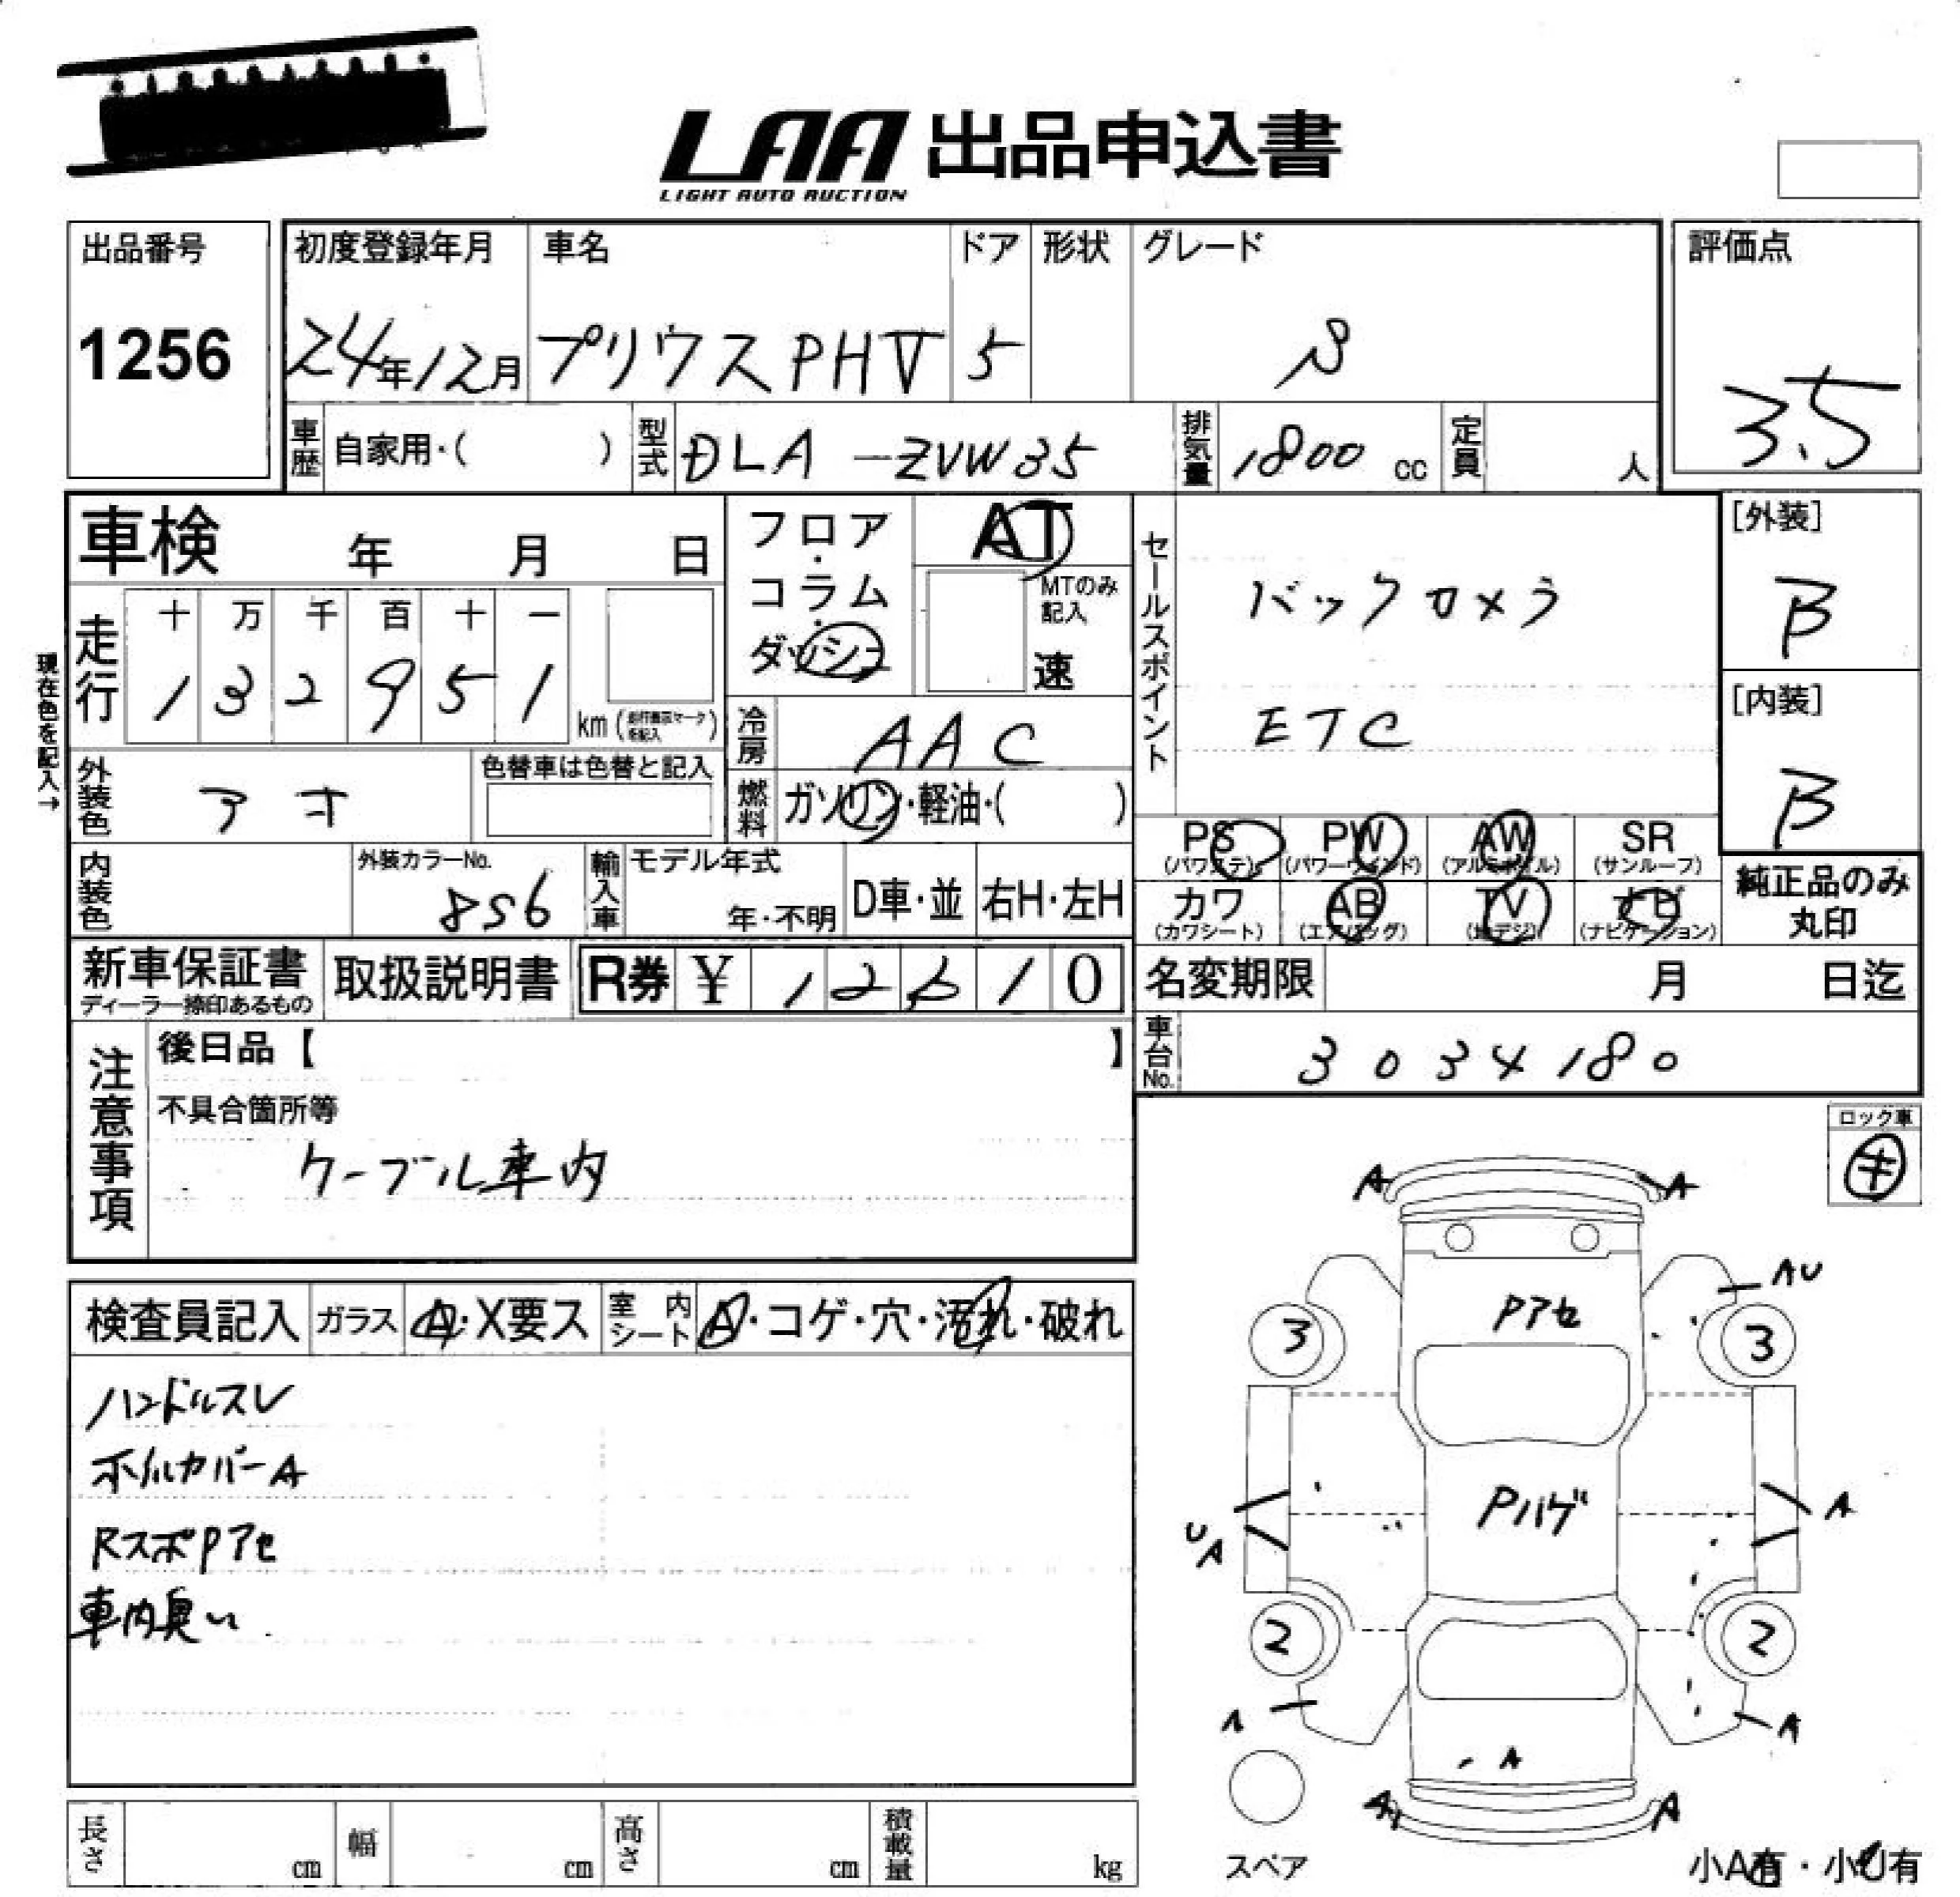 LAA 出品申込書
LIGHT AUTO AUCTION
出品番号
1256
初度登録年月
24年12月
車名
プリウスPHV
ドア
5
形状
グレード
S
評価点
3.5
車歴
自家用・( )
型式
DLA-ZVW35
排気量
1800 cc
定員
人
車検 年 月 日
フロア・コラム・ダッシュ
AT
MTのみ記入
速
走行
十 万 千 百 十 一
1 3 2 9 5 1
km (走行表示マークを記入)
現在色を記入→
外装色
アオ
色替車は色替と記入
冷房
AAC
燃料
ガソリン・軽油・( )
内装色
外装カラーNo.
8S6
輸入車
モデル年式
年・不明
D車・並
右H・左H
セールスポイント
バックカメラ
ETC
[外装]
B
[内装]
B
PS (パワステ)
PW (パワーウインド)
AW (アルミホイル)
SR (サンルーフ)
カワ (カワシート)
AB (エアバッグ)
TV (地デジ)
ナビ (ナビゲーション)
純正品のみ丸印
新車保証書
ディーラー捺印あるもの
取扱説明書
R券 ¥ 12610
名変期限 月 日迄
車台No.
3034180
注意事項
後日品【 】
不具合箇所等
ケーブル車内
ロック車
キ
検査員記入
ガラス
A・X要ス
室内シート
A・コゲ・穴・汚れ・破れ
ハンドルスレ
ホイルカバーA
RスポPアセ
車内臭い
A A
AU
Pアセ
3 3
Pハゲ
UA
A
2 2
A
A
A
A A
スペア
小A有・小U有
長さ cm
幅 cm
高さ cm
積載量 kg